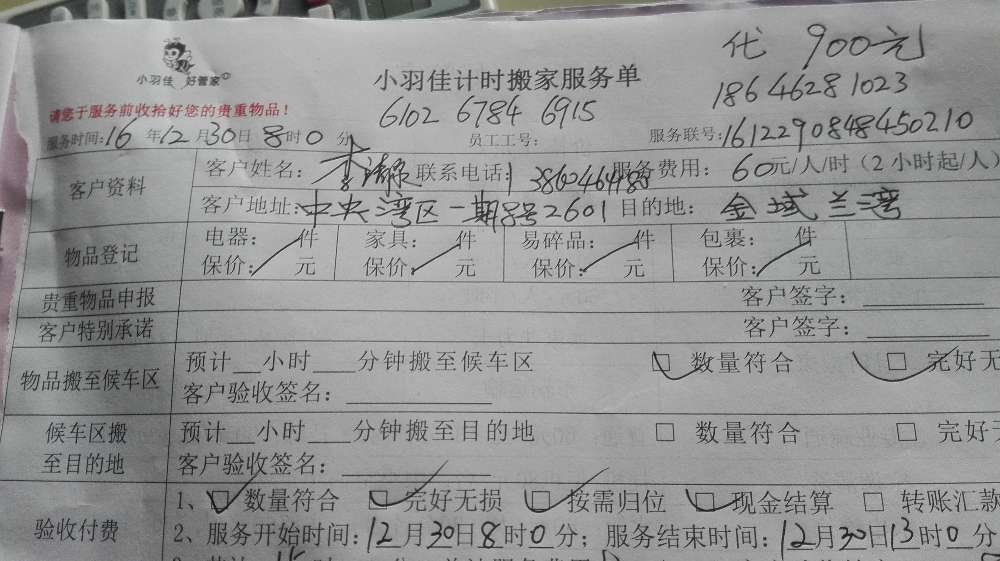 代 900元
小羽佳 好管家
小羽佳计时搬家服务单
18646281023
请您于服务前收拾好您的贵重物品！
6102 6784 6915
服务时间：16年12月30日8时0分 员工工号： 服务联号：1612290848450210
客户资料 客户姓名： 联系电话： 服务费用：60元/人/时（2小时起/人）
客户地址：中央湾区一期8号2601 目的地：金域兰湾
物品登记 电器： 件 家具： 件 易碎品： 件 包裹： 件
保价： 元 保价： 元 保价： 元 保价： 元
贵重物品申报 客户签字：
客户特别承诺 客户签字：
物品搬至候车区 预计__小时___分钟搬至候车区 数量符合 完好无
客户验收签名：
候车区搬至目的地 预计__小时___分钟搬至目的地 数量符合 完好无
客户验收签名：
验收付费 1、数量符合 完好无损 按需归位 现金结算 转账汇款
2、服务开始时间：12月30日8时0分；服务结束时间：12月30日13时0分